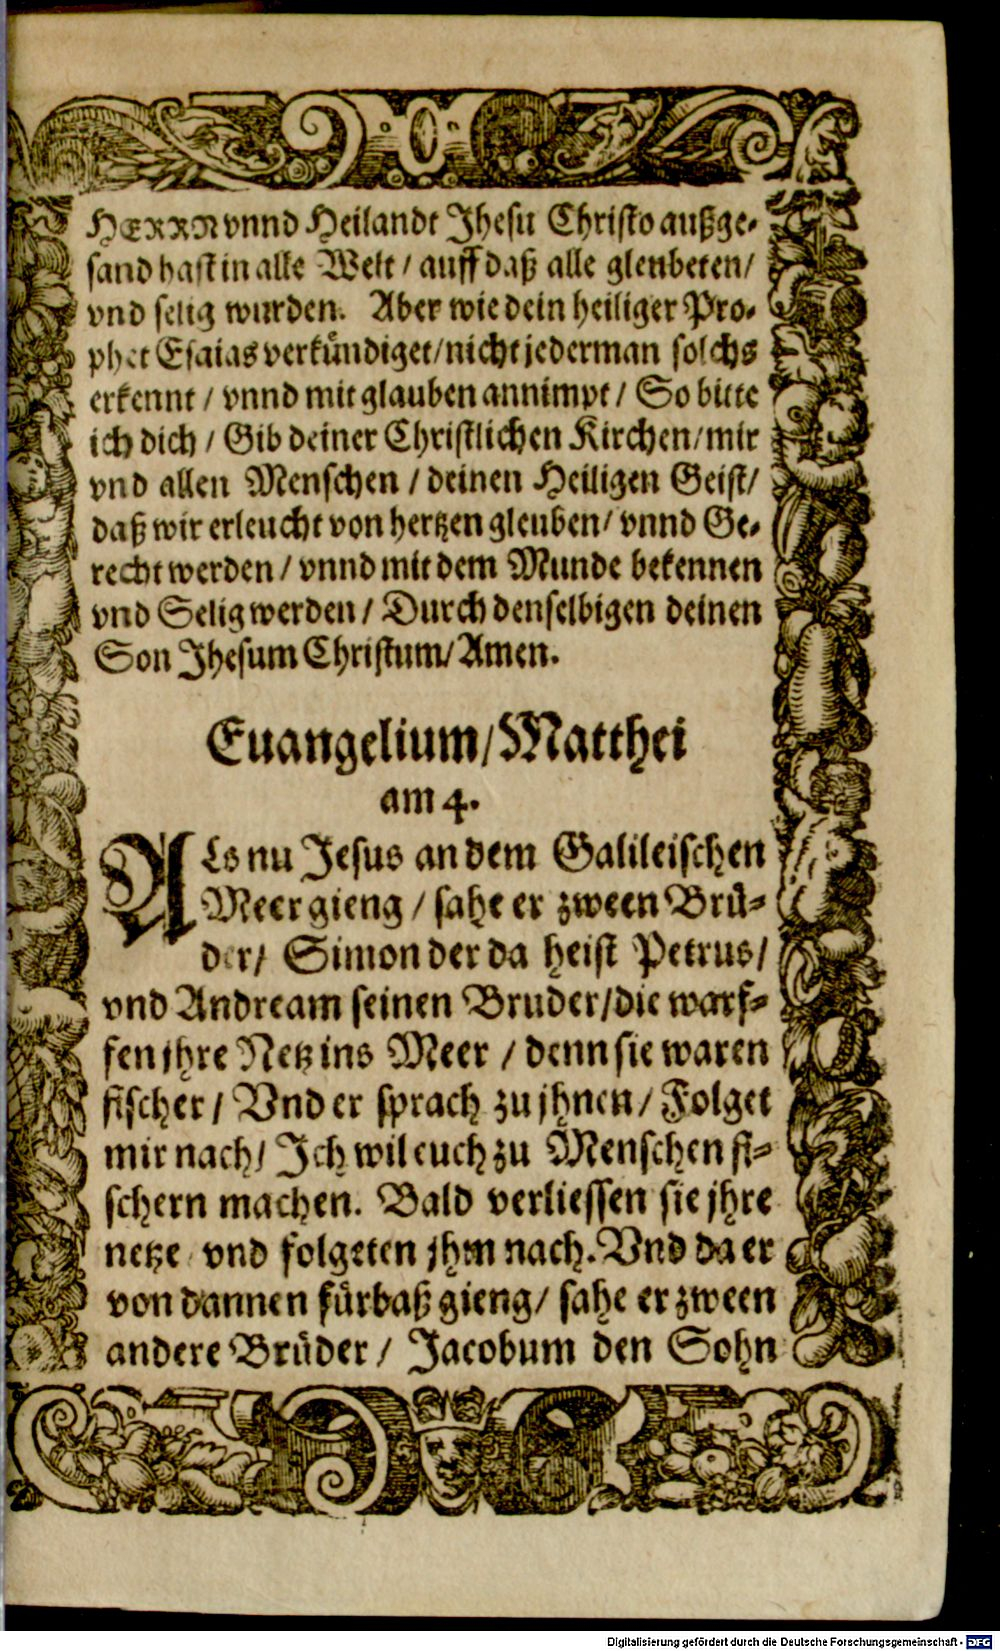 HERRN vnnd Heilandt Jhesu Christo außge-
sand hast in alle Welt / auff daß alle gleubeten /
vnd selig wurden. Aber wie dein heiliger Pro-
phet Esaias verkündiget / nicht jederman solchs
erkennt / vnnd mit glauben annimpt / So bitte
ich dich / Gib deiner Christlichen Kirchen / mir
vnd allen Menschen / deinen Heiligen Geist /
daß wir erleucht von hertzen gleuben / vnnd Ge-
recht werden / vnnd mit dem Munde bekennen
vnd Selig werden / Durch denselbigen deinen
Son Jhesum Christum / Amen.
Euangelium / Matthei
am 4.
ALs nu Jesus an dem Galileischen
Meer gieng / sahe er zween Brü-
der / Simon der da heist Petrus /
vnd Andream seinen Bruder / die warf-
fen jhre Netz ins Meer / denn sie waren
fischer / Vnd er sprach zu jhnen / Folget
mir nach / Jch wil euch zu Menschen fi-
schern machen. Bald verliessen sie jhre
netze vnd folgeten jhm nach. Vnd da er
von dannen fürbaß gieng / sahe er zween
andere Brüder / Jacobum den Sohn
Digitalisierung gefördert durch die Deutsche Forschungsgemeinschaft - DFG